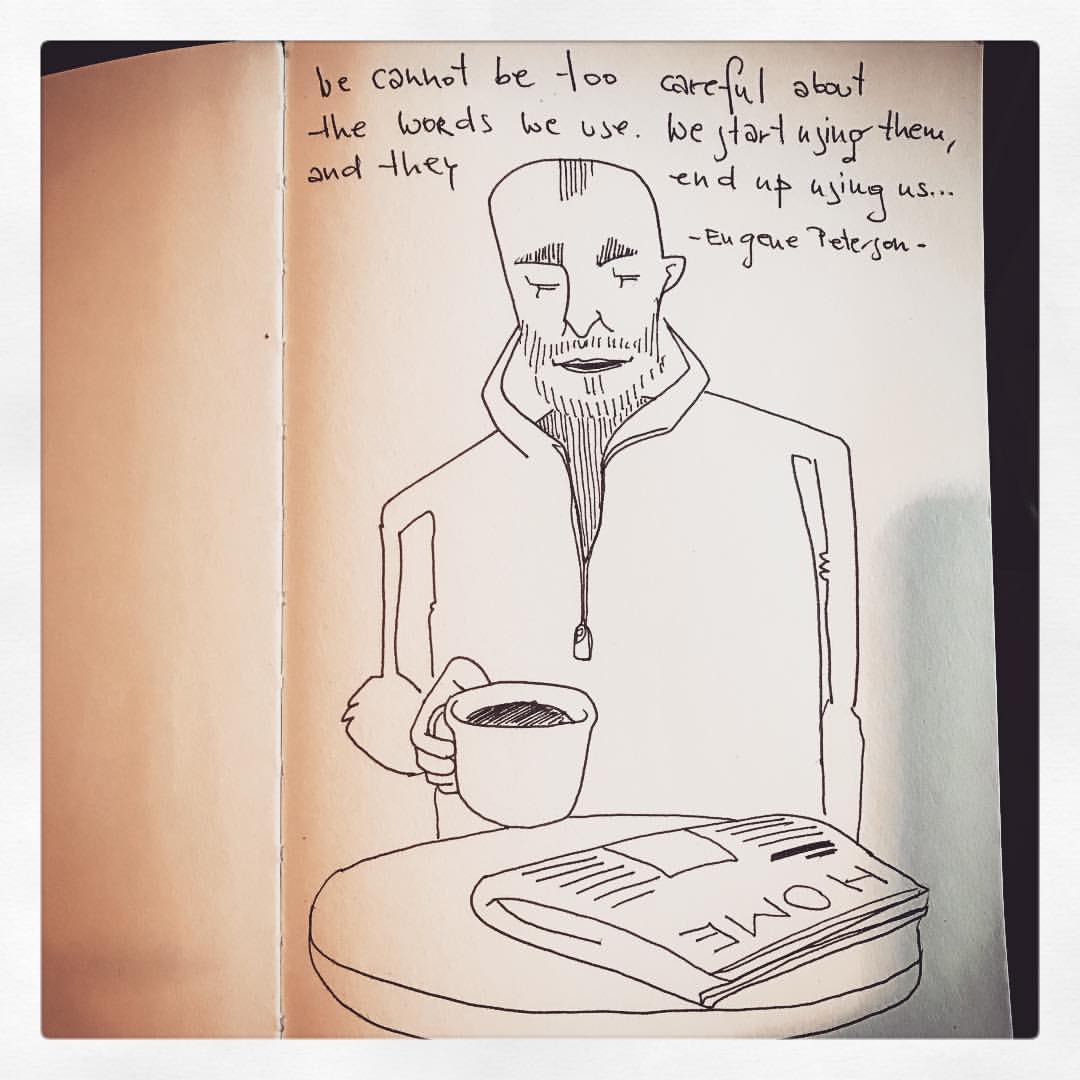 We cannot be too careful about
the words we use. We start using them,
and they end up using us...
-Eugene Peterson-
HOME